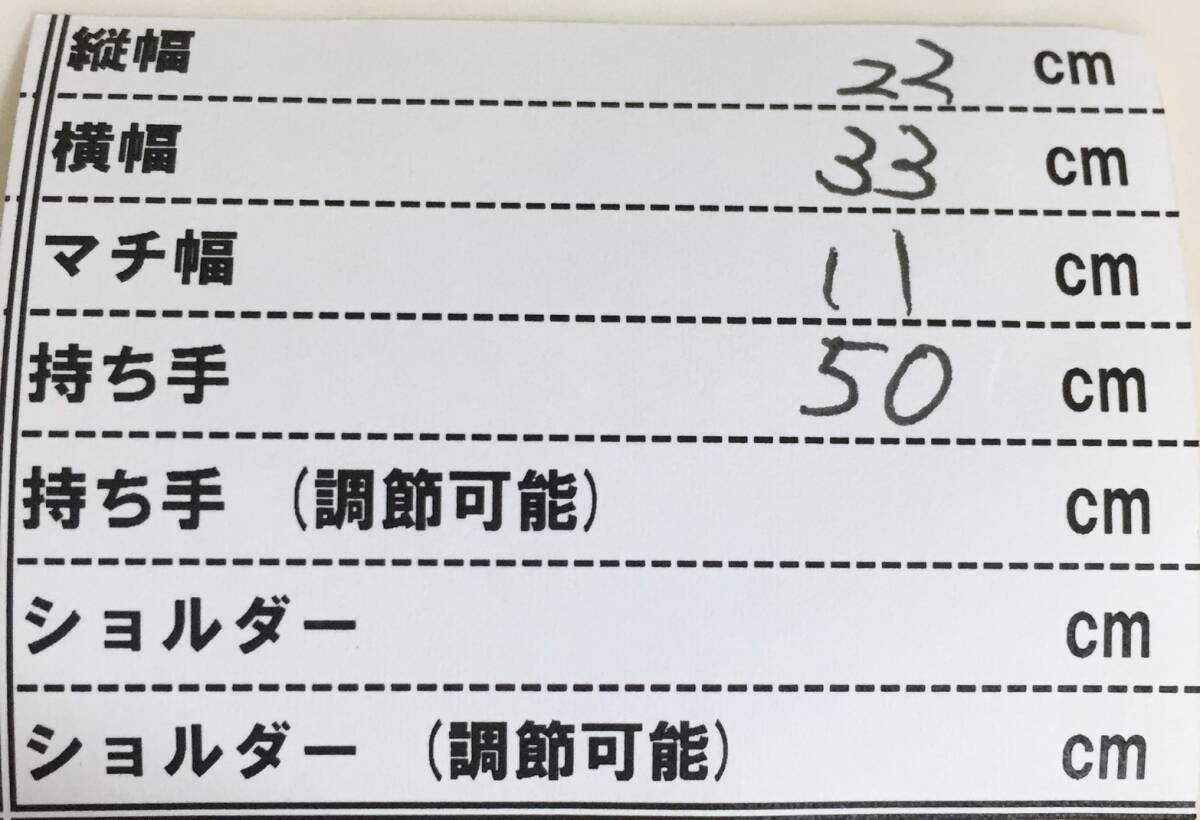 縦幅 22 cm
横幅 33 cm
マチ幅 11 cm
持ち手 50 cm
持ち手 (調節可能) cm
ショルダー cm
ショルダー (調節可能) cm